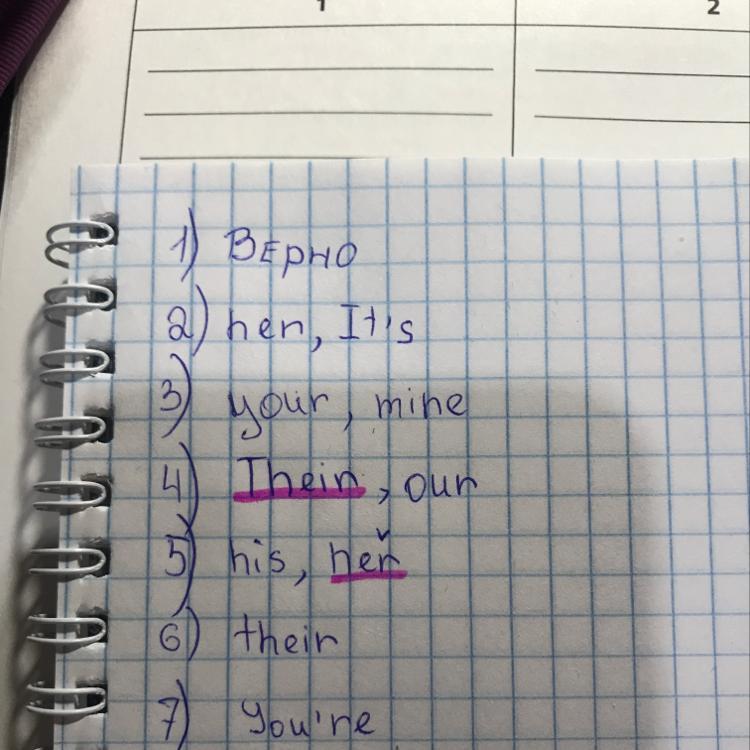 1 2
1) Верно
2) her, It's
3) your, mine
4) Their, our
5) his, her
6) their
7) You're